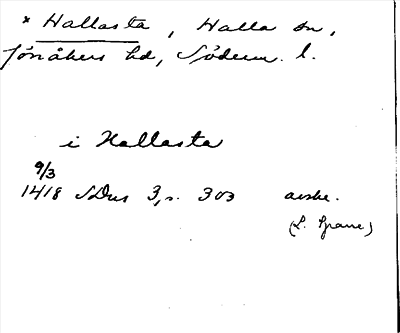 * Hallasta, Halla sn,
Jönåkers hd, Söderm. l.
i Hallasta
9/3
1418 SDns 3, s. 303 avskr.